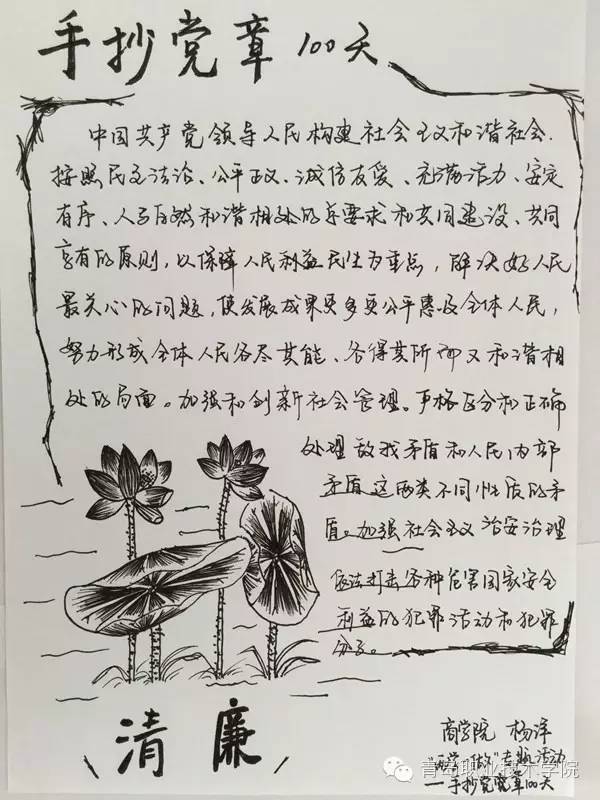 手抄党章100天
中国共产党领导人民构建社会主义和谐社会.
按照民主法治、公平正义、诚信友爱、充满活力、安定
有序、人与自然和谐相处的总要求和共同建设、共同
享有的原则,以保障人民利益民生为重点,解决好人民
最关心的问题,使发展成果更多更公平惠及全体人民,
努力形成全体人民各尽其能、各得其所而又和谐相
处的局面。加强和创新社会管理。严格区分和正确
处理敌我矛盾和人民内部
矛盾这两类不同性质的矛
盾。加强社会主义治安治理
依法打击各种危害国家安全
利益的犯罪活动和犯罪
分子。
清廉
商学院 杨洋
"两学一做"专题活动
—手抄党党章100天
青岛职业技术学院